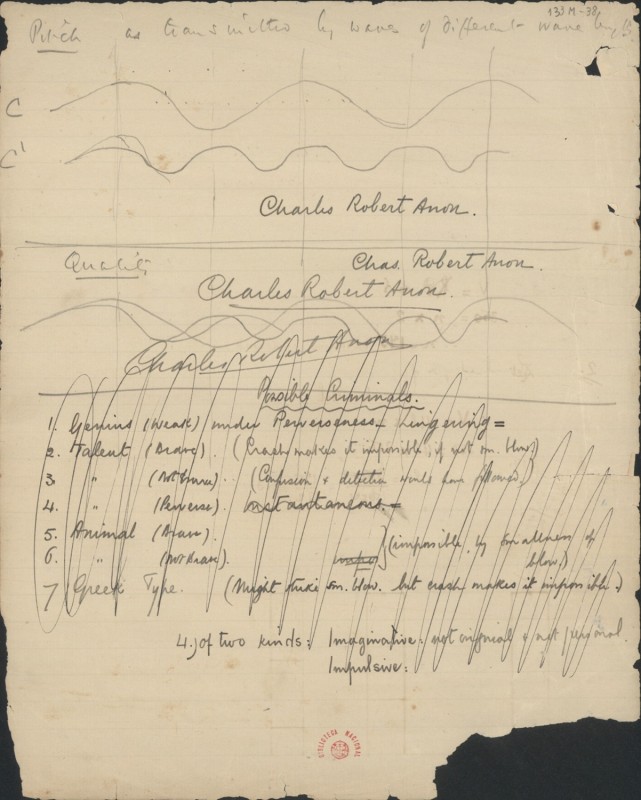 133M-38
Pitch as transmitted by waves of different wave
C
C'
Charles Robert Anon.
Quality
Chas. Robert Anon.
Charles Robert Anon.
Charles Robert Anon
Possible Criminals.
1. Genius (weak) under Perverseness - Lingering =
2. Talent (Brave). (Crash makes it impossible, if not sm. blow?)
3. " (Not brave). (Confusion & detection would have followed.)
4. " (Perverse). instantaneous. =
5. Animal (Brave).
6. " (Not brave). (impossible, by smallness of blow)
7 Greek Type. (Might strike sm. blow. but crash makes it impossible.)
4.) of two kinds: Imaginative: not & not personal.
Impulsive:
BIBLIOTECA NACIONAL